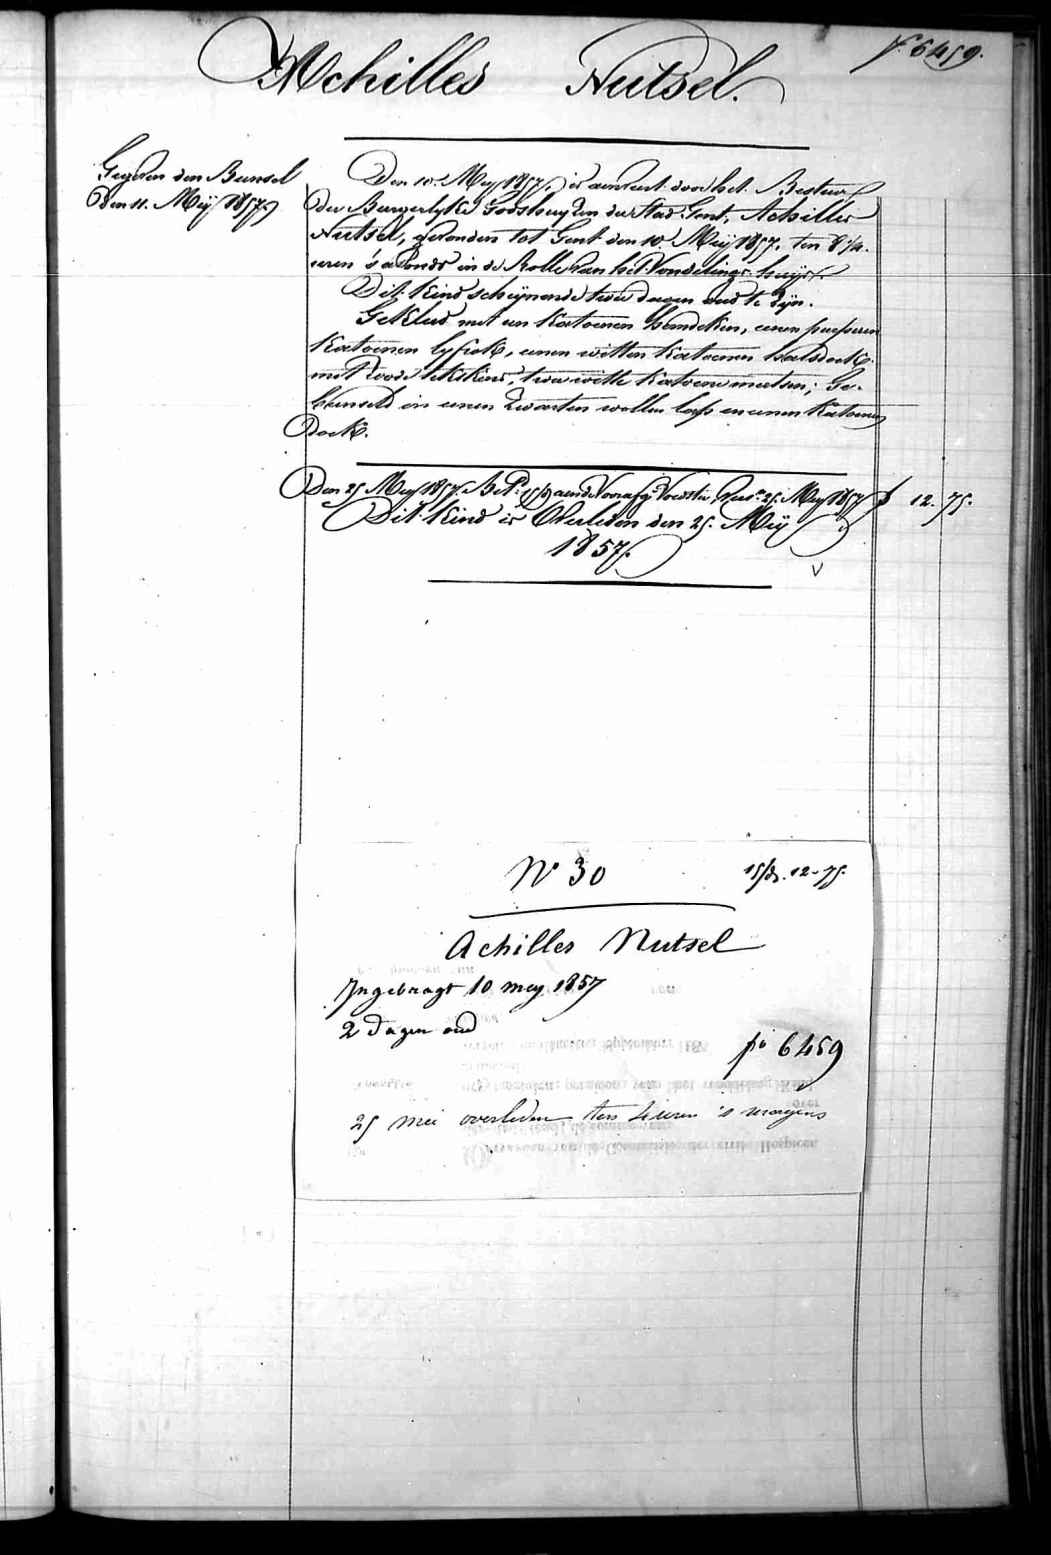 fo 6459.
Achilles Nutsel.
Gegeven den Bunsel
Den 11. Meÿ 1857.
Den 10.n Mey 1857, is aenveert door het Bestuer
der Burgerlyke Godshuyzen der Stad Gent, Achilles
Nutsel, gevonden tot Gent den 10. Meÿ 1857. ten 8 1/4
uren 's avonds in de Rolle van het Vondelings-huijs.
Dit Kind schijnende twee dagen oud te Zijn.
Gekleed met een Katoenen hemdeken, eenen purperen
Katoenen lyfrok, eenen witten katoenen halsdoek
met roode tekskens, twee witte Katoene mutsen; Ge-
bunseld in eenen Zwarten wollen lap en eenen Katoenen
doek.
Den 25 Mey 1857. Bet. 15/d aende Voorafg. Voedster 25. Mey 1857 f 12.75.
Dit Kind is Overleden den 25. Meÿ
1857.
No 30
15/d. 12-75.
Achilles Nutsel
Ingebragt 10 mey 1857
2 Dagen oud
fo 6459
25 mei overleden ten 4 uren 's morgens